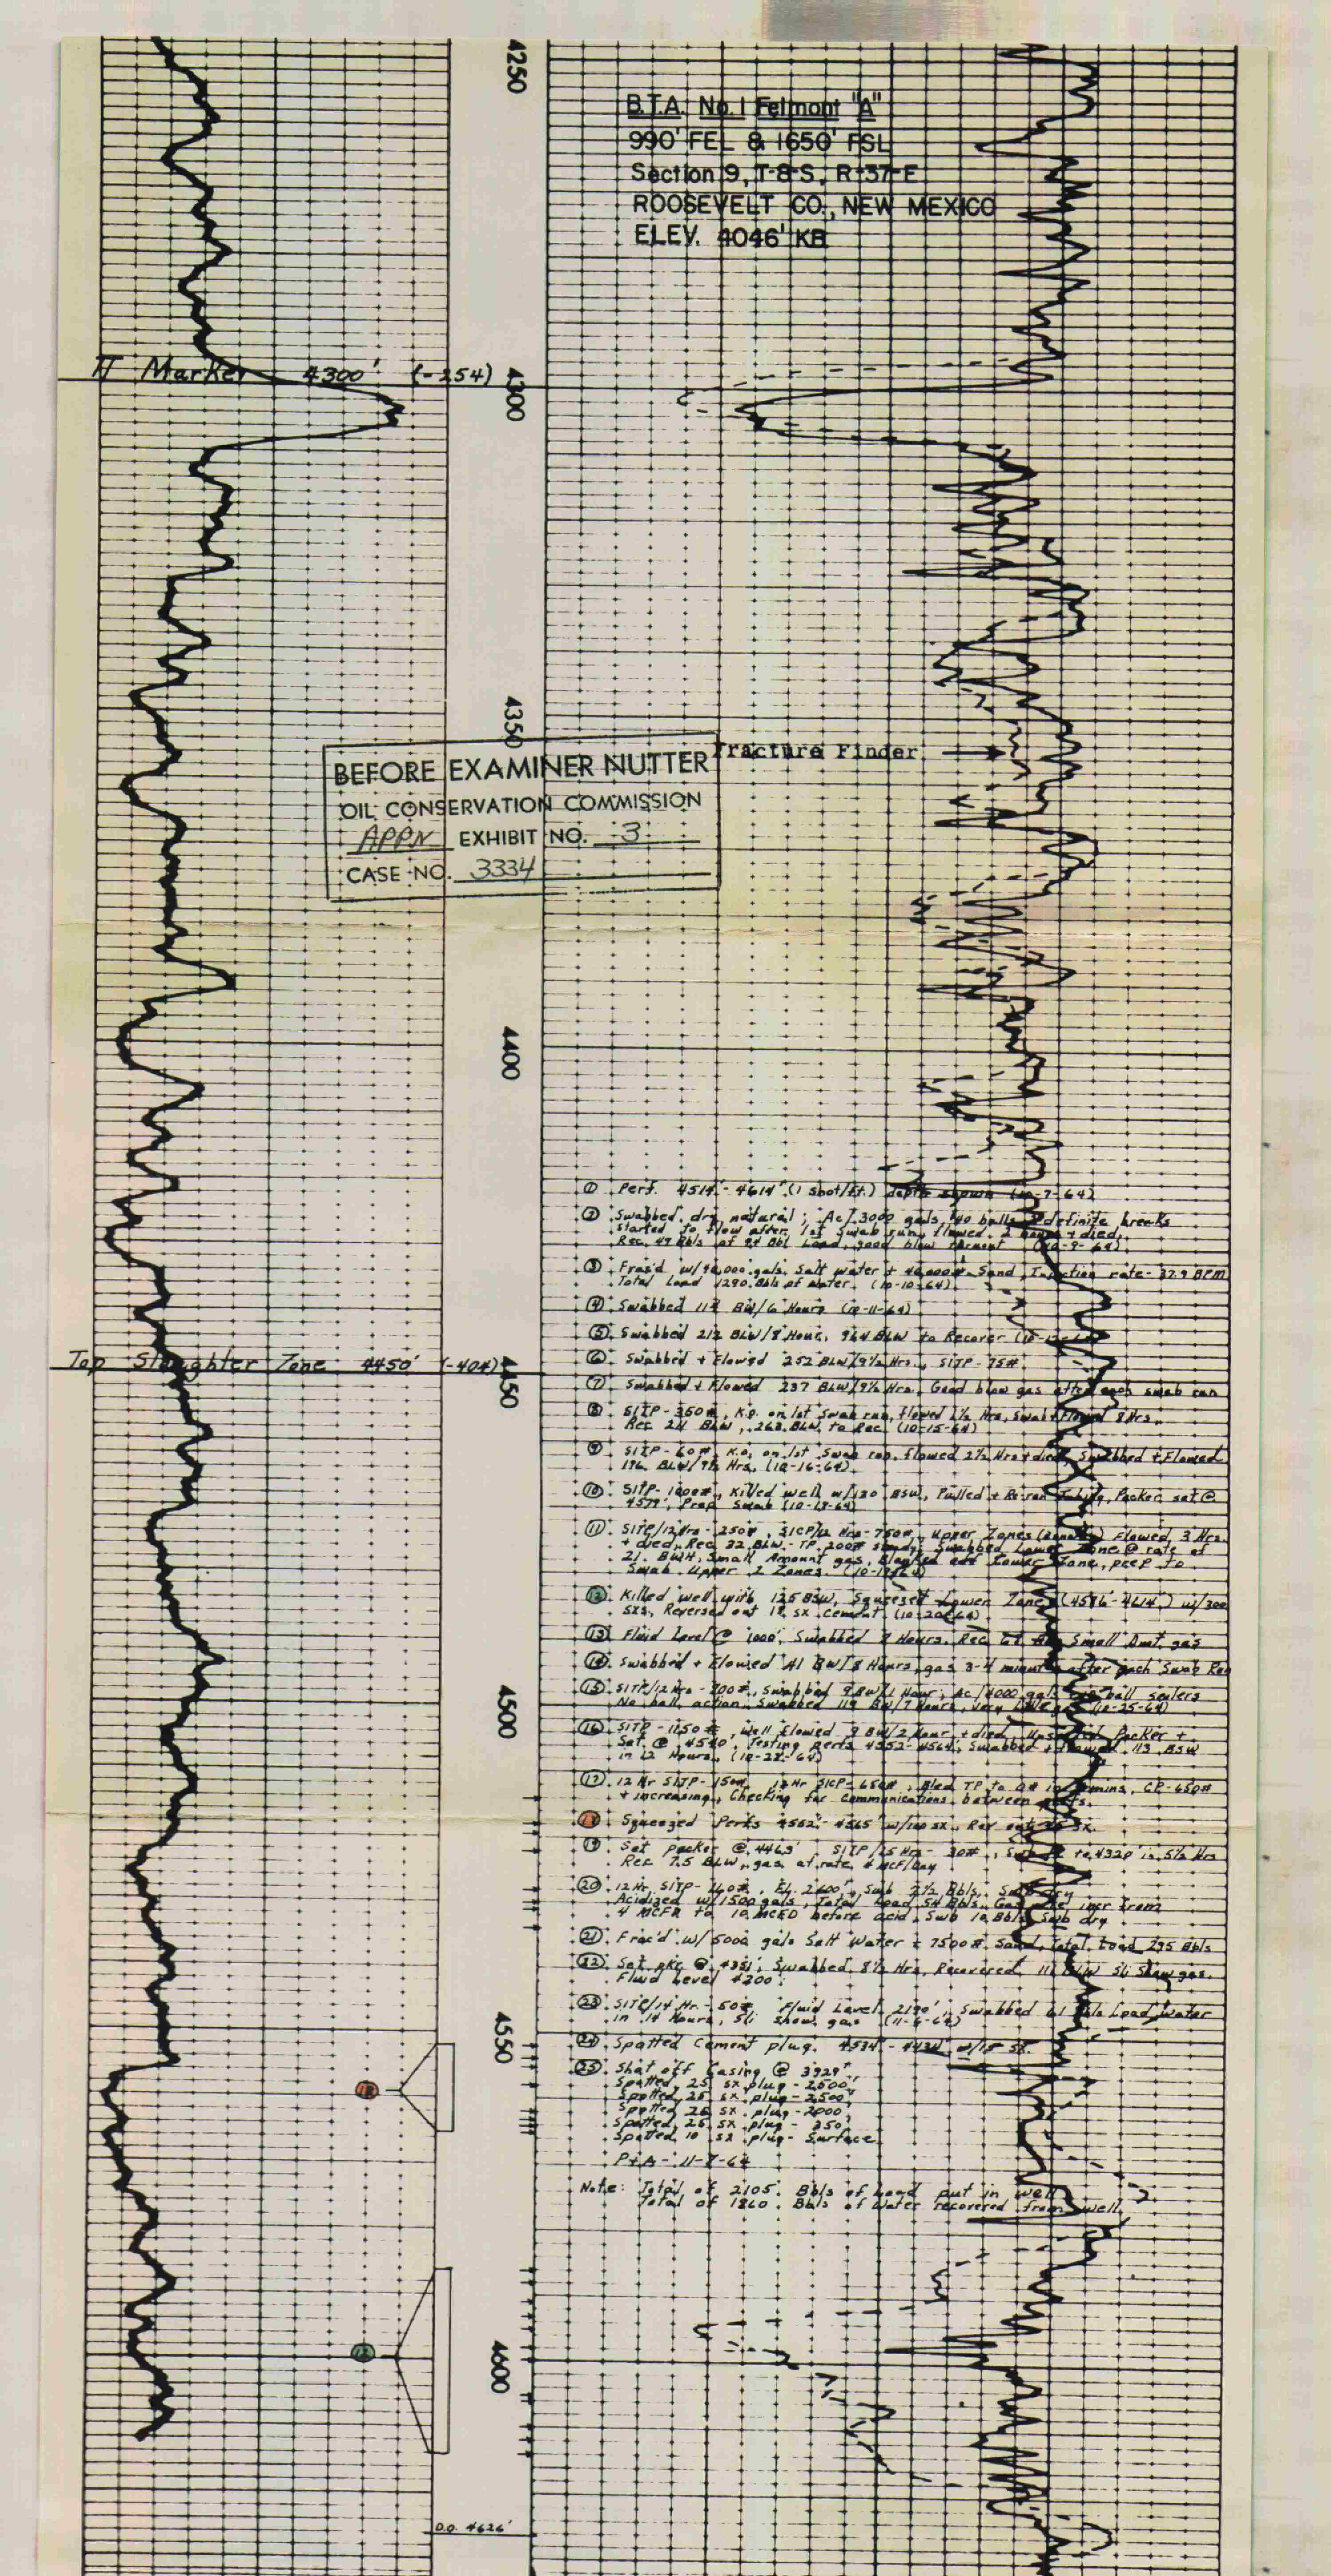 4250
B.T.A. No. 1 Felmont "A"
990' FEL & 1650' FSL
Section 9, T-8-S, R-37-E
ROOSEVELT CO., NEW MEXICO
ELEV. 4046' KB
π Marker 4300' (-254)
4300
4350
Fracture Finder
BEFORE EXAMINER NUTTER
OIL CONSERVATION COMMISSION
APPN EXHIBIT NO. 3
CASE NO. 3334
4400
① Perf. 4514'-4614' (1 shot/ft.) depth shown (10-7-64)
② Swabbed dry natural; Ac/3000 gals, 40 balls, definite breaks
started to flow after 1st swab run, flowed 2 hours + died,
Rec. 49 Bbls of 94 Bbl Load, good blow
③ Frac'd w/40,000 gals. Salt water + 40,000# Sand, Injection rate-37.9 BPM
Total Load 1290 Bbls of water. (10-10-64)
④ Swabbed 117 BW/6 Hours (10-11-64)
⑤ Swabbed 212 BLW/8 Hour, 964 BLW to Recover
Top Slaughter Zone 4450' (-404)
4450
⑥ Swabbed + Flowed 252 BLW/9½ Hrs., SITP-75#
⑦ Swabbed + Flowed 237 BLW/9½ Hrs., Good blow gas after each swab run
⑧ SITP-350#, K.O. on 1st Swab run, flowed 1½ Hrs, Swab + Flowed 8 Hrs.
Rec 211 BLW, 263 BLW to Rec. (10-15-64)
⑨ SITP-60#, K.O. on 1st Swab run, flowed 2½ Hrs + died, Swabbed + Flowed
196 BLW/9½ Hrs. (10-16-64)
⑩ SITP-1000#, Killed well w/130 BSW, Pulled + Re-ran Tubing, Packer set @
4579', Prep Swab (10-17-64)
⑪ SITP/12 Hrs-250#, SICP/12 Hrs-750#, Upper Zones Flowed 3 Hrs.
+ died, Rec 22 BLW.-TP 200# steady, Swabbed Lower Zone @ rate of
21 BWH, Small Amount gas, Blanked off Lower Zone, prep to
Swab Upper 2 Zones. (10-19-64)
⑫ Killed well with 125 BSW, Squeezed Lower Zone (4586'-4614') w/300
sxs, Reversed out 18 sx cement (10-20-64)
⑬ Fluid Level @ 1000', Swabbed 8 Hours, Rec 61 Small Amt. gas
⑭ Swabbed + Flowed 41 BW/8 Hours, gas 3-4 minutes after each Swab Run
⑮ SITP/12 Hrs-200#, Swabbed 9 BW/1 Hour, Ac/4000 gals ball sealers
No ball action, Swabbed 119 BW/7 Hours, very (10-25-64)
4500
⑯ SITP-1150#, Well Flowed 9 BW/2 Hour + died, Packer +
Set @ 4540', Testing perfs 4552-4564', Swabbed + Flowed 113 BSW
in 12 Hours. (10-28-64)
⑰ 12 Hr SITP-150#, 12 Hr SICP-650#, Bled TP to 0# in mins, CP-650#
+ increasing, Checking for communications between perfs.
⑱ Squeezed Perfs 4552'-4565' w/100 sx., Rev out sx.
⑲ Set packer @ 4463', SITP/15 Hrs-30#, Swab to 4320' in 5½ Hrs
Rec 7.5 BLW, gas at rate 4 MCF/Day
⑳ 12 Hr. SITP-160#, FL 2600', Swb 2½ Bbls, Swb dry
Acidized w/1500 gals, Total Load 54 Bbls, Gas incr from
4 MCFD to 10 MCFD before acid, Swb 10 Bbls Swb dry
㉑ Frac'd w/5000 gals Salt Water + 7500# Sand, Total Load 295 Bbls
㉒ Set pkr @ 4351', Swabbed 8½ Hrs, Recovered 111 BLW Sli Show gas.
Fluid Level 4200'
㉓ SITP/14 Hr-50#, Fluid Level 2190', Swabbed 61 Bbls Load Water
in 14 Hours, Sli show gas (11-6-64)
4550
㉔ Spotted Cement plug 4534'-4434' w/15 sx.
㉕ Shot off Casing @ 3929'
Spotted 25 sx plug-2600',
Spotted 25 sx plug-2500',
Spotted 25 sx plug-2000',
Spotted 25 sx plug-350',
Spotted 10 sx plug-Surface
P+A-11-8-64
⑱
Note: Total of 2105 Bbls of Load put in well
Total of 1860 Bbls of Water recovered from well.
⑫
4600
D.D. 4626'